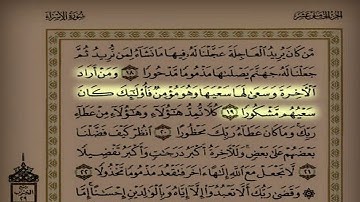 الجزء الخامس عشر
سورة الإسراء
مَّن كَانَ يُرِيدُ الْعَاجِلَةَ عَجَّلْنَا لَهُ فِيهَا مَا نَشَاءُ لِمَن نُّرِيدُ ثُمَّ
جَعَلْنَا لَهُ جَهَنَّمَ يَصْلَىٰهَا مَذْمُومًا مَّدْحُورًا ١٨ وَمَنْ أَرَادَ
الْآخِرَةَ وَسَعَىٰ لَهَا سَعْيَهَا وَهُوَ مُؤْمِنٌ فَأُولَٰئِكَ كَانَ
سَعْيُهُم مَّشْكُورًا ١٩ كُلًّا نُّمِدُّ هَٰؤُلَاءِ وَهَٰؤُلَاءِ مِنْ عَطَاءِ
رَبِّكَ وَمَا كَانَ عَطَاءُ رَبِّكَ مَحْظُورًا ٢٠ انظُرْ كَيْفَ فَضَّلْنَا
بَعْضَهُمْ عَلَىٰ بَعْضٍ وَلَلْآخِرَةُ أَكْبَرُ دَرَجَاتٍ وَأَكْبَرُ تَفْضِيلًا
٢١ لَّا تَجْعَلْ مَعَ اللَّهِ إِلَٰهًا آخَرَ فَتَقْعُدَ مَذْمُومًا مَّخْذُولًا ٢٢
وَقَضَىٰ رَبُّكَ أَلَّا تَعْبُدُوا إِلَّا إِيَّاهُ وَبِالْوَالِدَيْنِ إِحْسَانًا إِمَّا
الحزب
٢٩